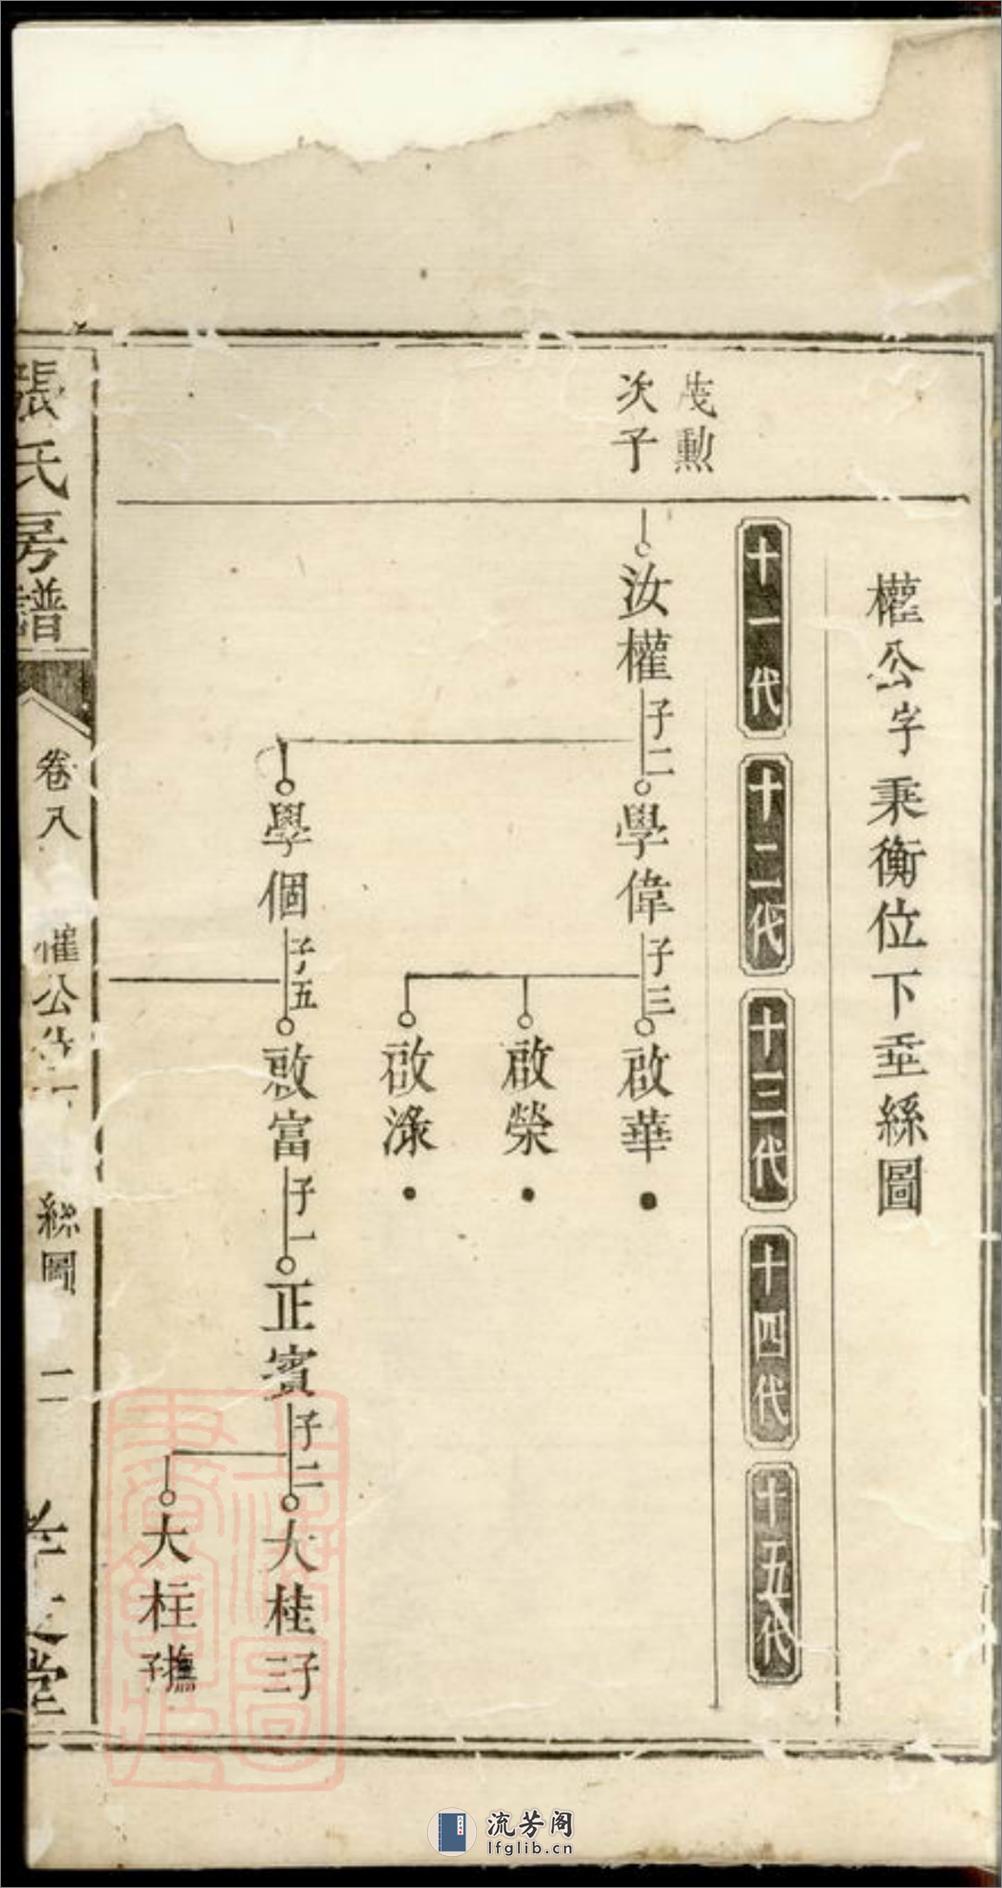 權公字秉衡位下垂絲圖
十一代
十二代
十三代
十四代
十五代
茂勳
次子
汝權
子二
學偉
子三
啟華
啟榮
啟淥
學個
子五
啟富
子一
正賓
子二
大桂
子三
大柱
撫子
張氏房譜
卷八
權公
絲圖
二
堂
流芳阁
lfglib.cn